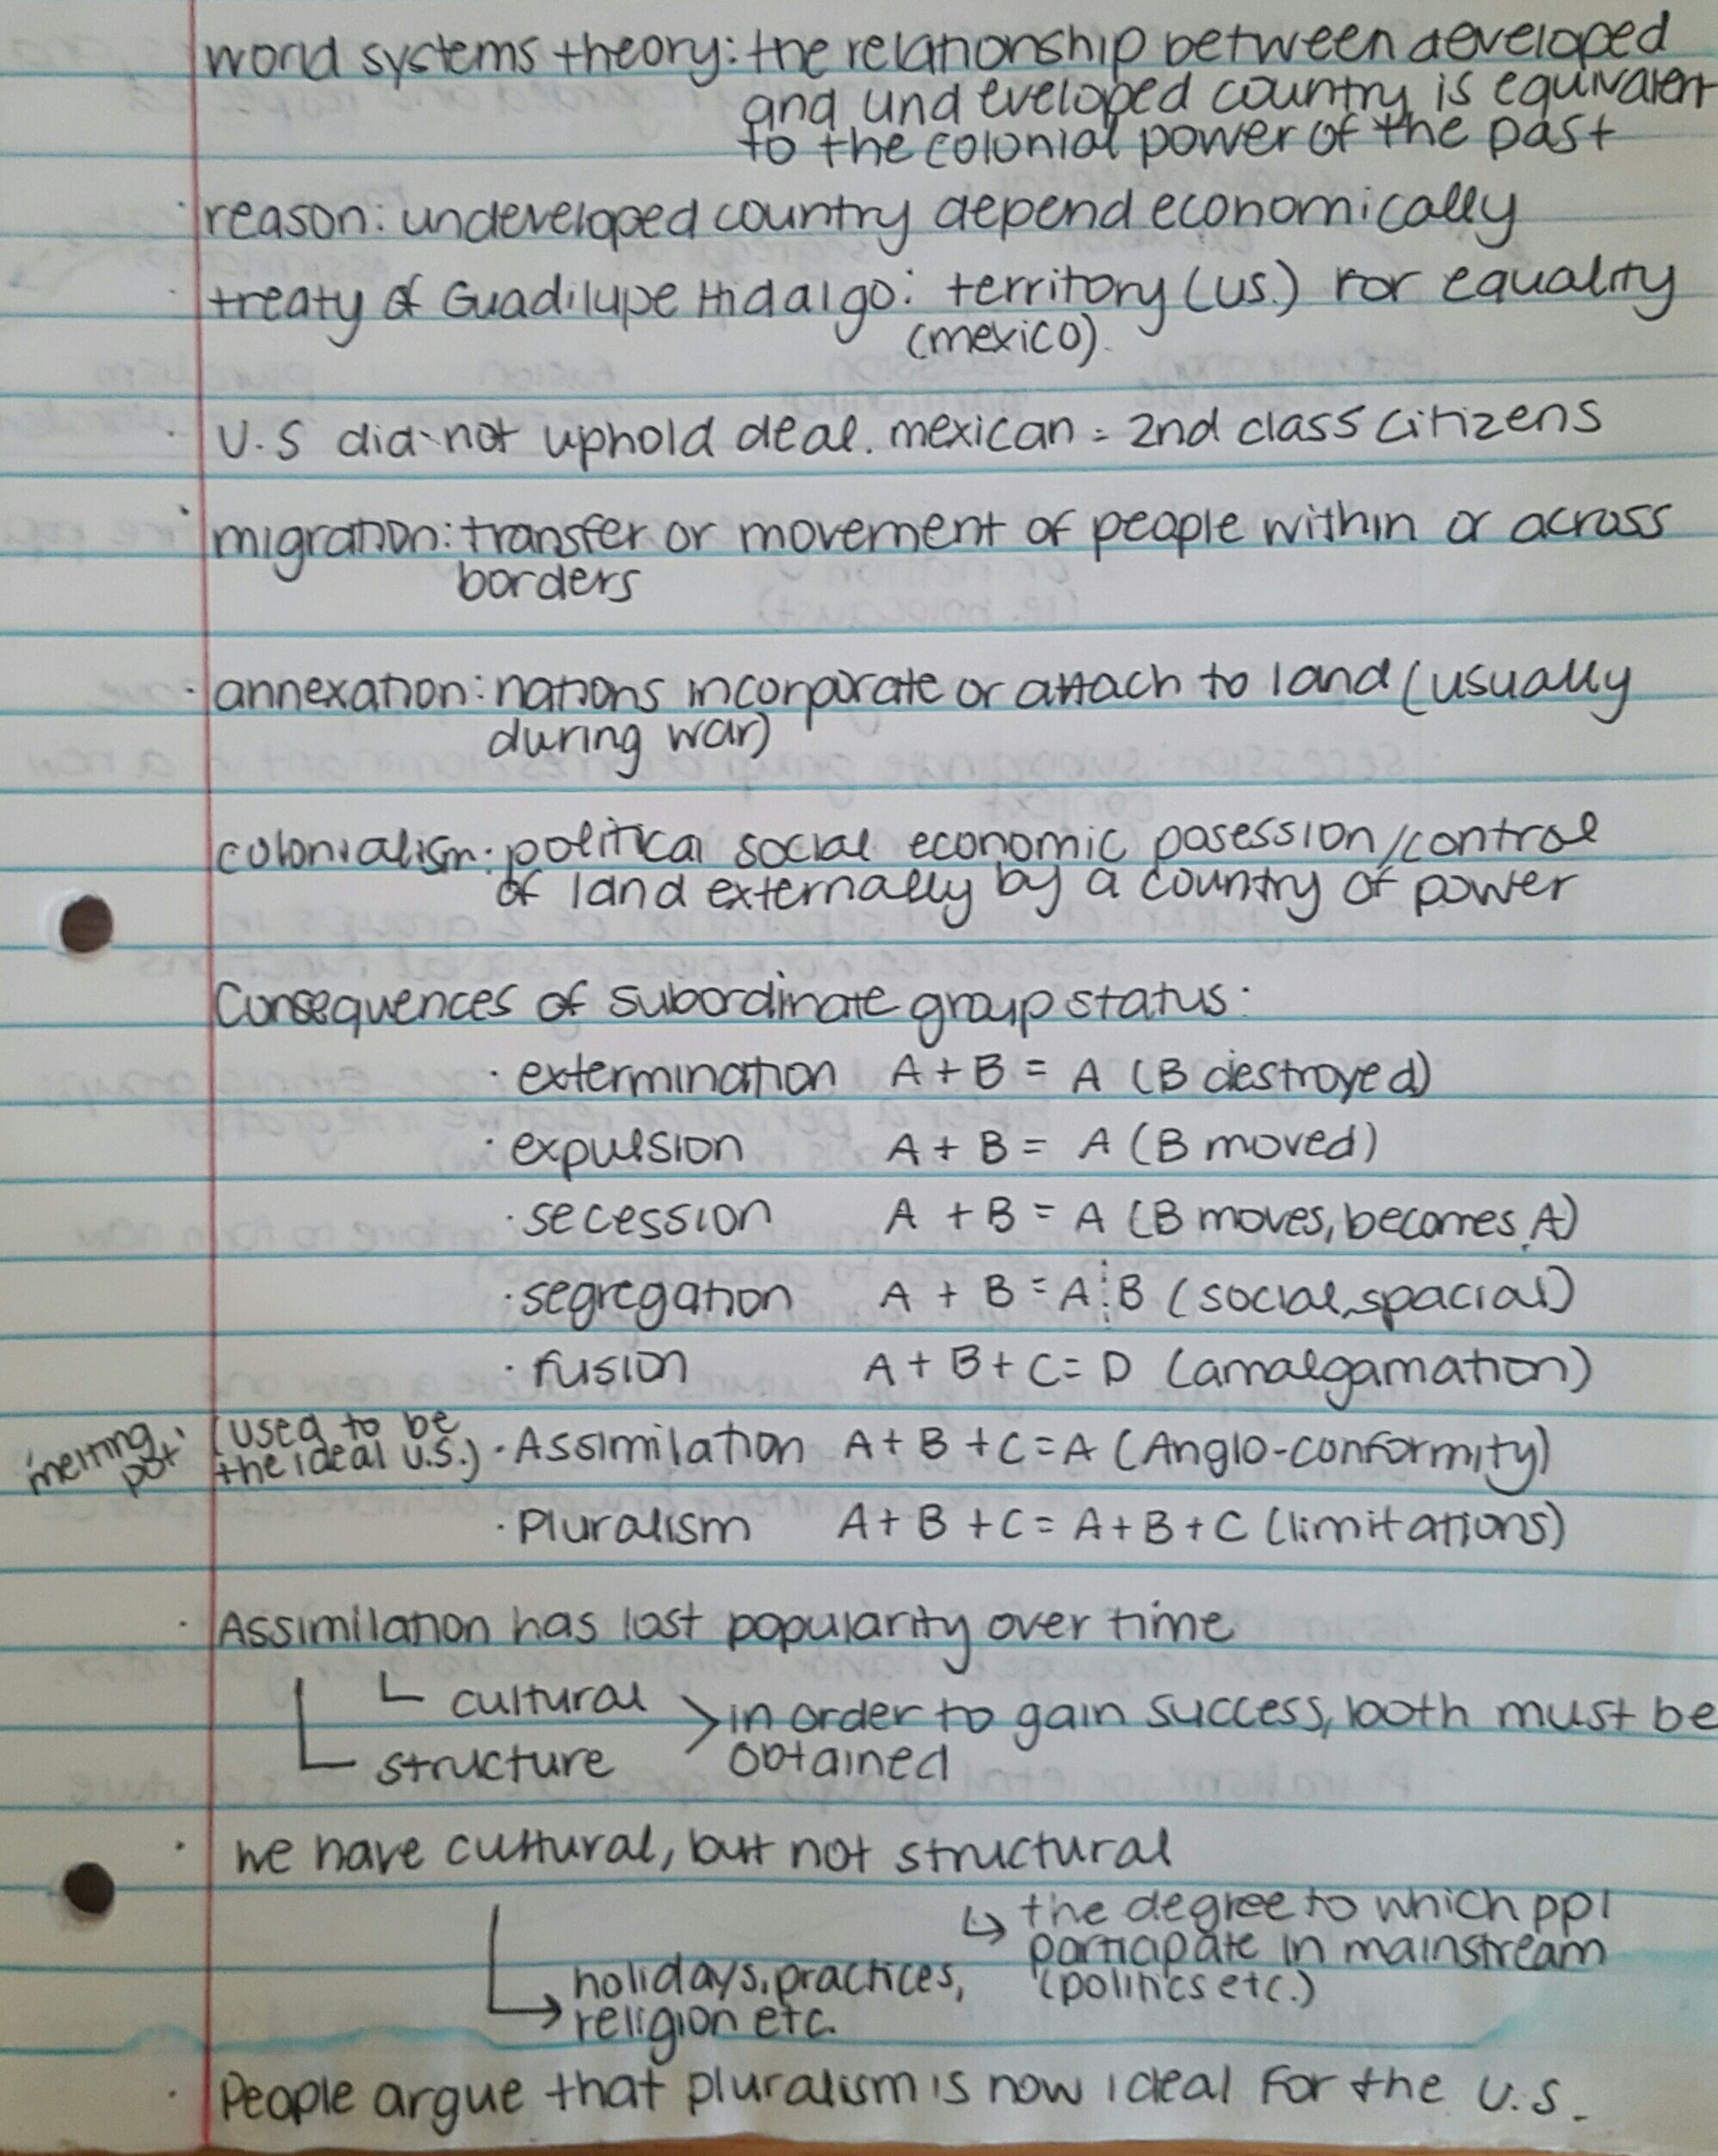 world systems theory: the relationship between developed
and undeveloped country is equivalent
to the colonial power of the past
· reason: undeveloped country depend economically
· treaty of Guadilupe Hidalgo: territory (us.) for equality
(mexico).
· U.S did not uphold deal. mexican = 2nd class citizens
· migration: transfer or movement of people within or across
borders
· annexation: nations incorporate or attach to land (usually
during war)
colonialism: political social economic posession/control
of land externally by a country of power
Consequences of subordinate group status:
· extermination A + B = A (B destroyed)
· expulsion A + B = A (B moved)
· secession A + B = A (B moves, becomes A)
· segregation A + B = A ¦ B (social, spacial)
· fusion A + B + C = D (amalgamation)
'melting pot' (used to be the ideal U.S.) · Assimilation A + B + C = A (Anglo-conformity)
· Pluralism A + B + C = A + B + C (limitations)
· Assimilation has lost popularity over time
cultural > in order to gain success, both must be
structure obtained
· we have cultural, but not structural
↳ the degree to which ppl
participate in mainstream
holidays, practices, (politics etc.)
religion etc.
· People argue that pluralism is now ideal for the U.S.